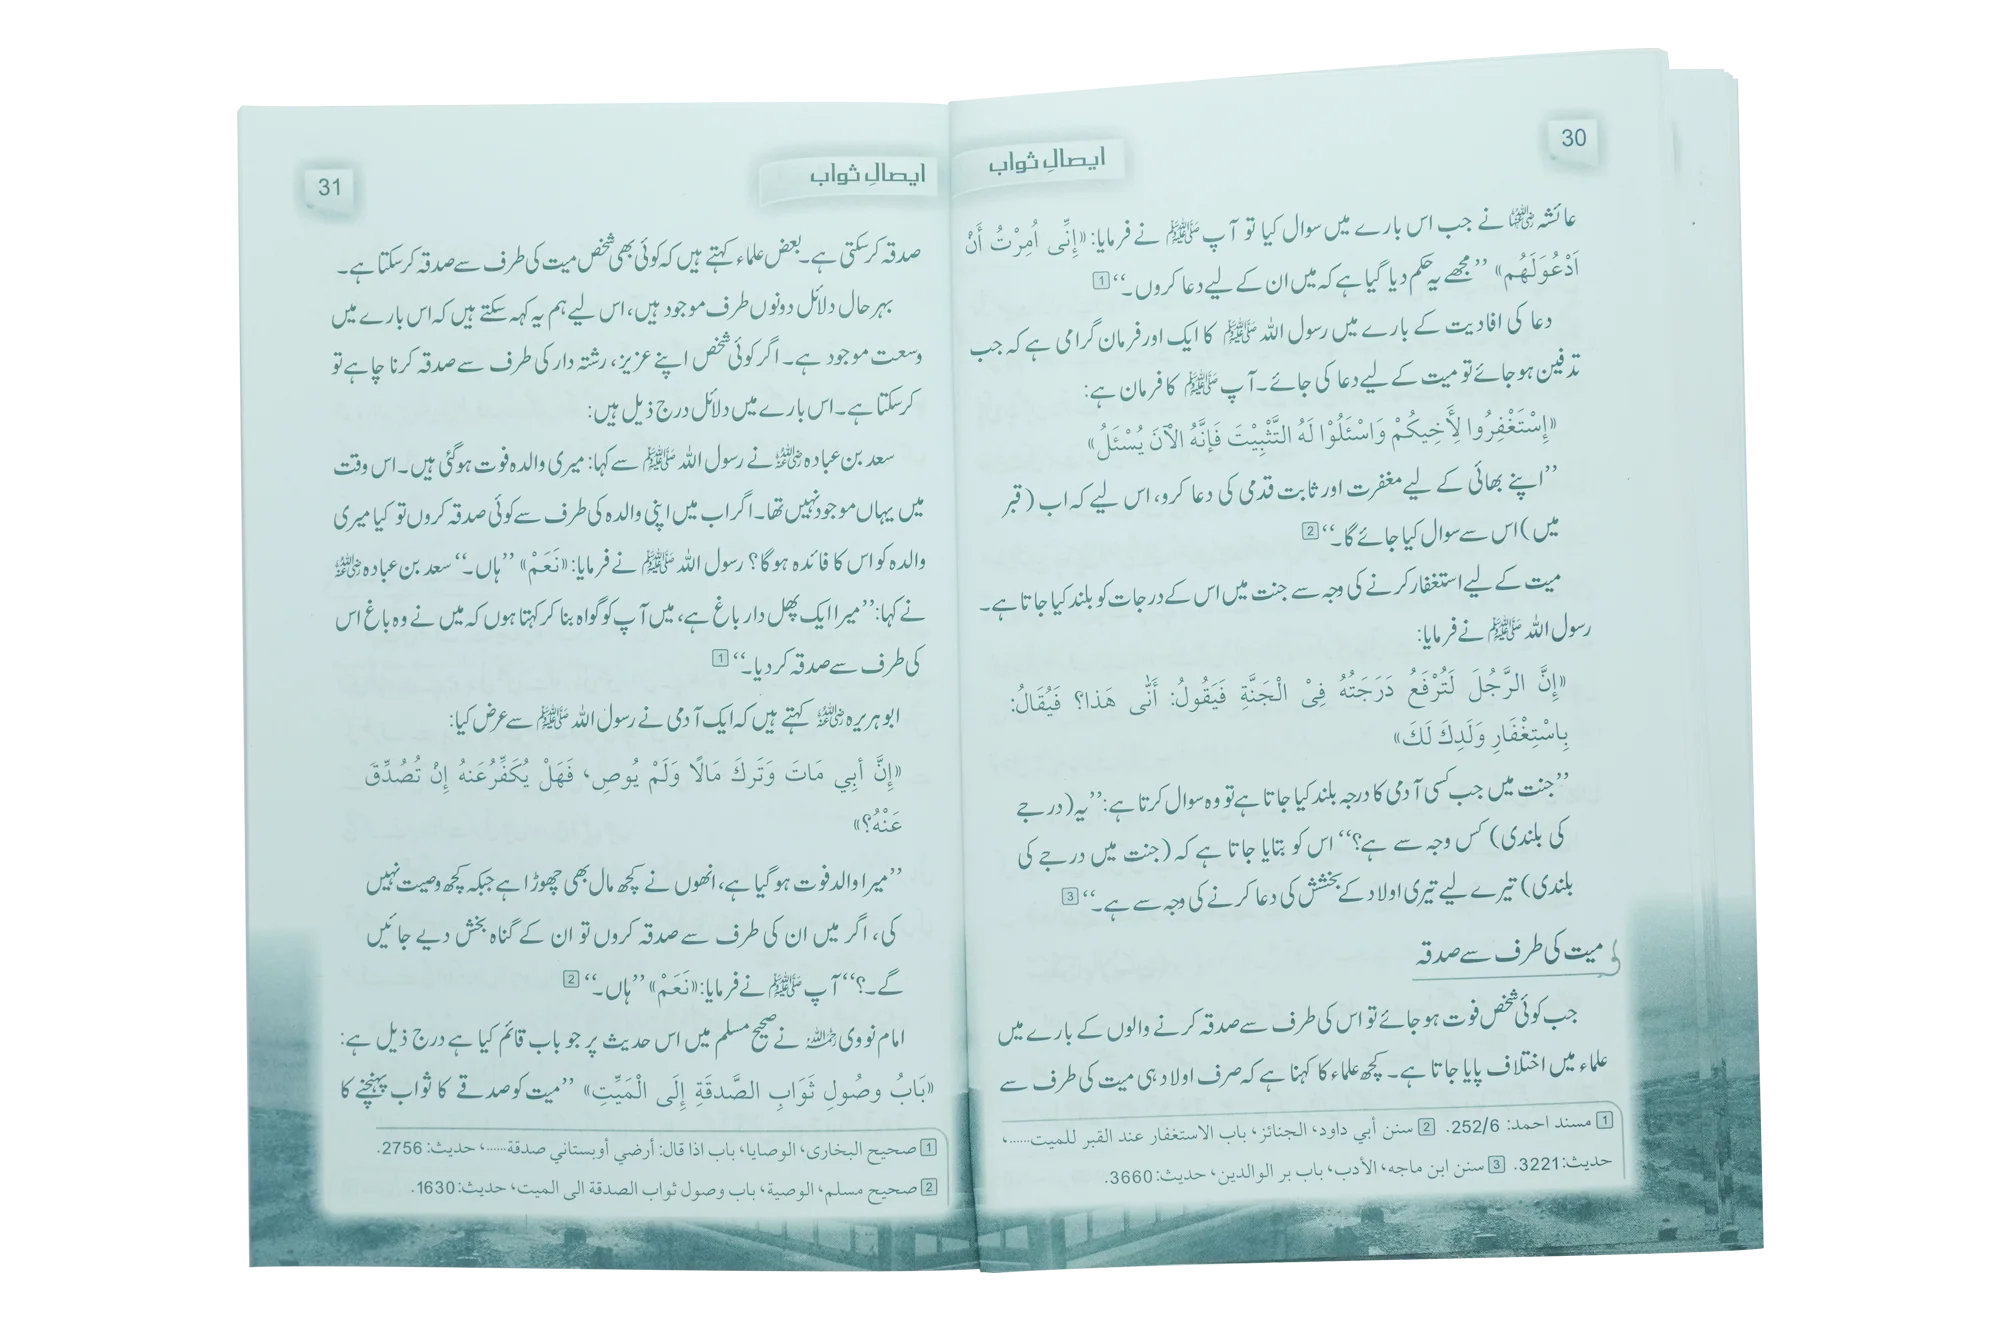 30
ایصالِ ثواب
عائشہ رضی اللہ عنہا نے جب اس بارے میں سوال کیا تو آپ ﷺ نے فرمایا: «إِنِّى اُمِرْتُ أَنْ
اَدْعُوَلَهُم» ’’مجھے یہ حکم دیا گیا ہے کہ میں ان کے لیے دعا کروں۔‘‘ 1
دعا کی افادیت کے بارے میں رسول اللہ ﷺ کا ایک اور فرمان گرامی ہے کہ جب
تدفین ہو جائے تو میت کے لیے دعا کی جائے۔ آپ ﷺ کا فرمان ہے:
«إِسْتَغْفِرُوا لِأَخِيكُمْ وَاسْئَلُوْا لَهُ التَّثْبِيْتَ فَإِنَّهُ الْآنَ يُسْئَلُ»
’’اپنے بھائی کے لیے مغفرت اور ثابت قدمی کی دعا کرو، اس لیے کہ اب (قبر
میں) اس سے سوال کیا جائے گا۔‘‘ 2
میت کے لیے استغفار کرنے کی وجہ سے جنت میں اس کے درجات کو بلند کیا جاتا ہے۔
رسول اللہ ﷺ نے فرمایا:
«إِنَّ الرَّجُلَ لَتُرْفَعُ دَرَجَتُهُ فِىْ الْجَنَّةِ فَيَقُولُ: أَنّٰى هَذا؟ فَيُقَالُ:
بِاسْتِغْفَارِ وَلَدِكَ لَكَ»
’’جنت میں جب کسی آدمی کا درجہ بلند کیا جاتا ہے تو وہ سوال کرتا ہے: ’’یہ (درجے
کی بلندی) کس وجہ سے ہے؟‘‘ اس کو بتایا جاتا ہے کہ (جنت میں درجے کی
بلندی) تیرے لیے تیری اولاد کے بخشش کی دعا کرنے کی وجہ سے ہے۔‘‘ 3
میت کی طرف سے صدقہ
جب کوئی شخص فوت ہو جائے تو اس کی طرف سے صدقہ کرنے والوں کے بارے میں
علماء میں اختلاف پایا جاتا ہے۔ کچھ علماء کا کہنا ہے کہ صرف اولاد ہی میت کی طرف سے
1 مسند احمد: 252/6. 2 سنن أبي داود، الجنائز، باب الاستغفار عند القبر للميت......،
حديث:3221. 3 سنن ابن ماجه، الأدب، باب بر الوالدين، حديث:3660.
ایصالِ ثواب
31
صدقہ کر سکتی ہے۔ بعض علماء کہتے ہیں کہ کوئی بھی شخص میت کی طرف سے صدقہ کر سکتا ہے۔
بہر حال دلائل دونوں طرف موجود ہیں، اس لیے ہم یہ کہہ سکتے ہیں کہ اس بارے میں
وسعت موجود ہے۔ اگر کوئی شخص اپنے عزیز، رشتہ دار کی طرف سے صدقہ کرنا چاہے تو
کر سکتا ہے۔ اس بارے میں دلائل درج ذیل ہیں:
سعد بن عبادہ رضی اللہ عنہ نے رسول اللہ ﷺ سے کہا: میری والدہ فوت ہو گئی ہیں۔ اس وقت
میں یہاں موجود نہیں تھا۔ اگر اب میں اپنی والدہ کی طرف سے کوئی صدقہ کروں تو کیا میری
والدہ کو اس کا فائدہ ہوگا؟ رسول اللہ ﷺ نے فرمایا: «نَعَمْ» ’’ہاں۔‘‘ سعد بن عبادہ رضی اللہ عنہ
نے کہا: ’’میرا ایک پھل دار باغ ہے، میں آپ کو گواہ بنا کر کہتا ہوں کہ میں نے وہ باغ اس
کی طرف سے صدقہ کر دیا۔‘‘ 1
ابو ہریرہ رضی اللہ عنہ کہتے ہیں کہ ایک آدمی نے رسول اللہ ﷺ سے عرض کیا:
«إِنَّ أبِي مَاتَ وَتَرَكَ مَالًا وَلَمْ يُوصِ، فَهَلْ يُكَفِّرُعَنهُ إِنْ تُصُدِّقَ
عَنْهُ؟»
’’میرا والد فوت ہو گیا ہے، انھوں نے کچھ مال بھی چھوڑا ہے جبکہ کچھ وصیت نہیں
کی، اگر میں ان کی طرف سے صدقہ کروں تو ان کے گناہ بخش دیے جائیں
گے۔؟‘‘ آپ ﷺ نے فرمایا: «نَعَمْ» ’’ہاں۔‘‘ 2
امام نووی رحمہ اللہ نے صحیح مسلم میں اس حدیث پر جو باب قائم کیا ہے درج ذیل ہے:
«بَابُ وصُولِ ثَوَابِ الصَّدقَةِ إِلَى الْمَيِّتِ» ’’میت کو صدقے کا ثواب پہنچنے کا
1 صحيح البخارى، الوصايا، باب اذا قال: أرضي أوبستاني صدقة......، حديث: 2756.
2 صحيح مسلم، الوصية، باب وصول ثواب الصدقة الى الميت، حديث:1630.